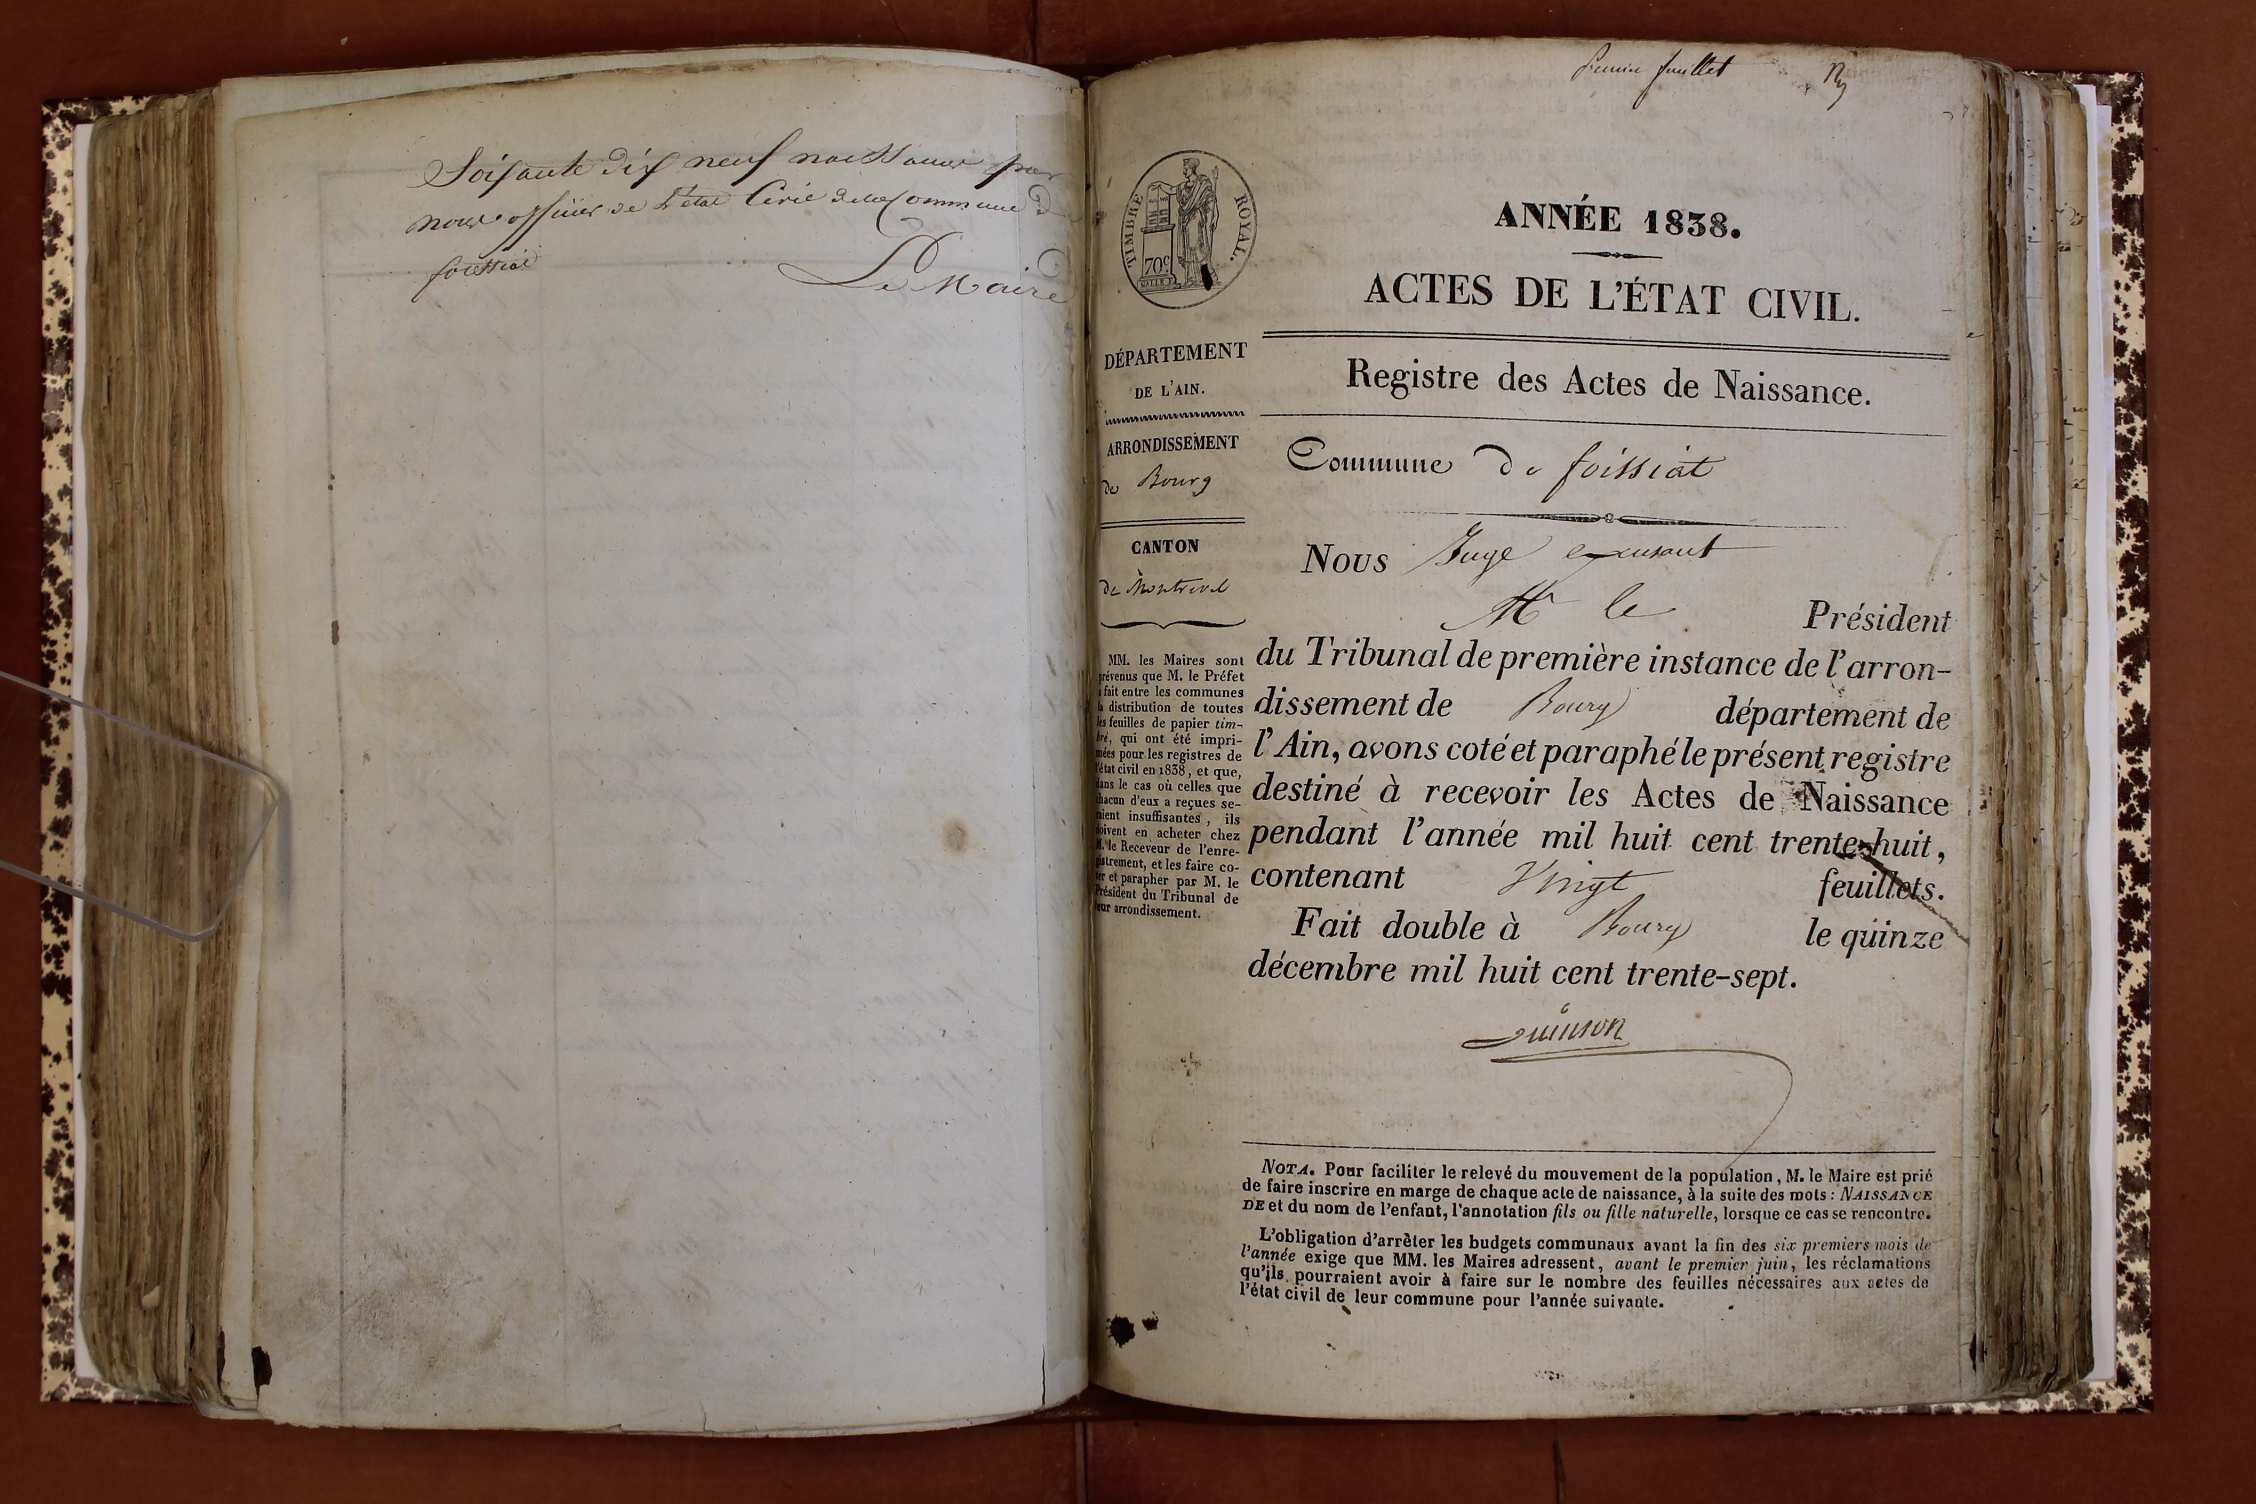 Soisante dix neuf naissance par
nous officier de l'état Civil de la Commune de
foissiat
Le Maire
Premier feuillet
TIMBRE ROYAL.
70c
ANNÉE 1838.
ACTES DE L'ÉTAT CIVIL.
DÉPARTEMENT
DE L'AIN.
ARRONDISSEMENT
de Bourg
CANTON
de Montrevel
MM. les Maires sont
prévenus que M. le Préfet
a fait entre les communes
la distribution de toutes
les feuilles de papier tim-
bré, qui ont été impri-
mées pour les registres de
l'état civil en 1838, et que,
dans le cas où celles que
chacun d'eux a reçues se-
raient insuffisantes, ils
doivent en acheter chez
M. le Receveur de l'enre-
gistrement, et les faire co-
ter et parapher par M. le
Président du Tribunal de
leur arrondissement.
Registre des Actes de Naissance.
Commune de foissiat
Nous Juge excusant
Mr le Président
du Tribunal de première instance de l'arron-
dissement de Bourg département de
l'Ain, avons coté et paraphé le présent registre
destiné à recevoir les Actes de Naissance
pendant l'année mil huit cent trente-huit,
contenant Vingt feuillets.
Fait double à Bourg le quinze
décembre mil huit cent trente-sept.
Quinson
NOTA. Pour faciliter le relevé du mouvement de la population, M. le Maire est prié
de faire inscrire en marge de chaque acte de naissance, à la suite des mots: NAISSANCE
DE et du nom de l'enfant, l'annotation fils ou fille naturelle, lorsque ce cas se rencontre.
L'obligation d'arrêter les budgets communaux avant la fin des six premiers mois de
l'année exige que MM. les Maires adressent, avant le premier juin, les réclamations
qu'ils pourraient avoir à faire sur le nombre des feuilles nécessaires aux actes de
l'état civil de leur commune pour l'année suivante.